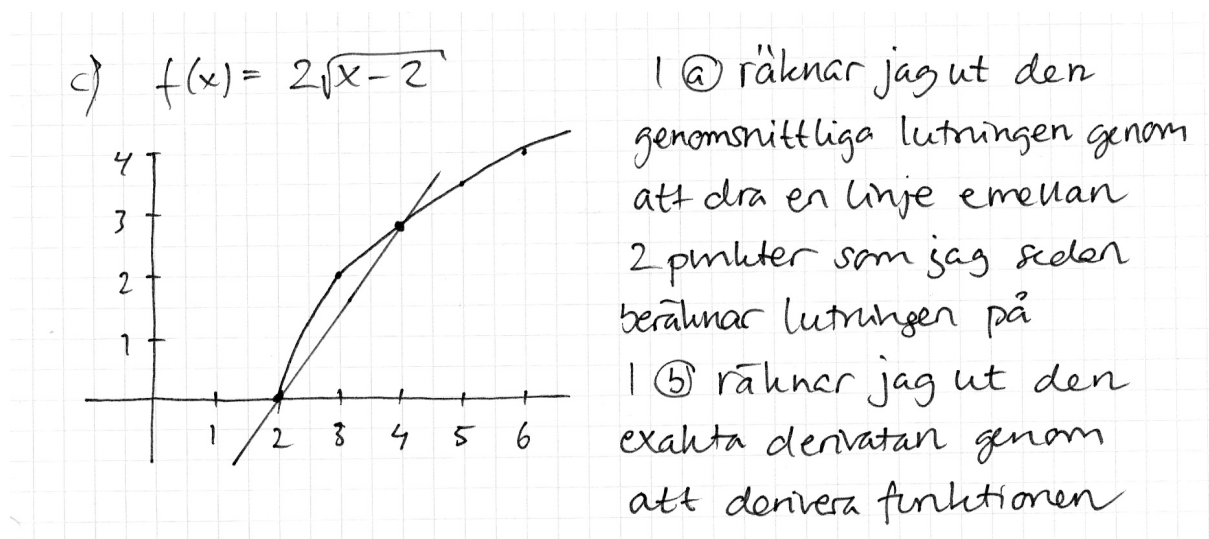 c) f(x) = 2√(x-2)
4
3
2
1
1 2 3 4 5 6
I ⓐ räknar jag ut den
genomsnittliga lutningen genom
att dra en linje emellan
2 punkter som jag sedan
beräknar lutningen på
I ⓑ räknar jag ut den
exakta derivatan genom
att derivera funktionen